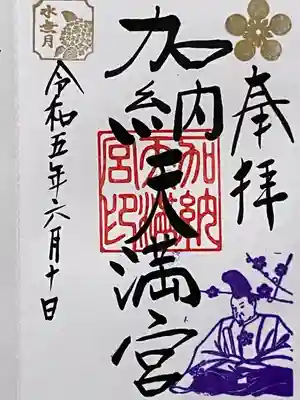 奉拝
加納天満宮
加納天満宮印
令和五年六月十日
水無月